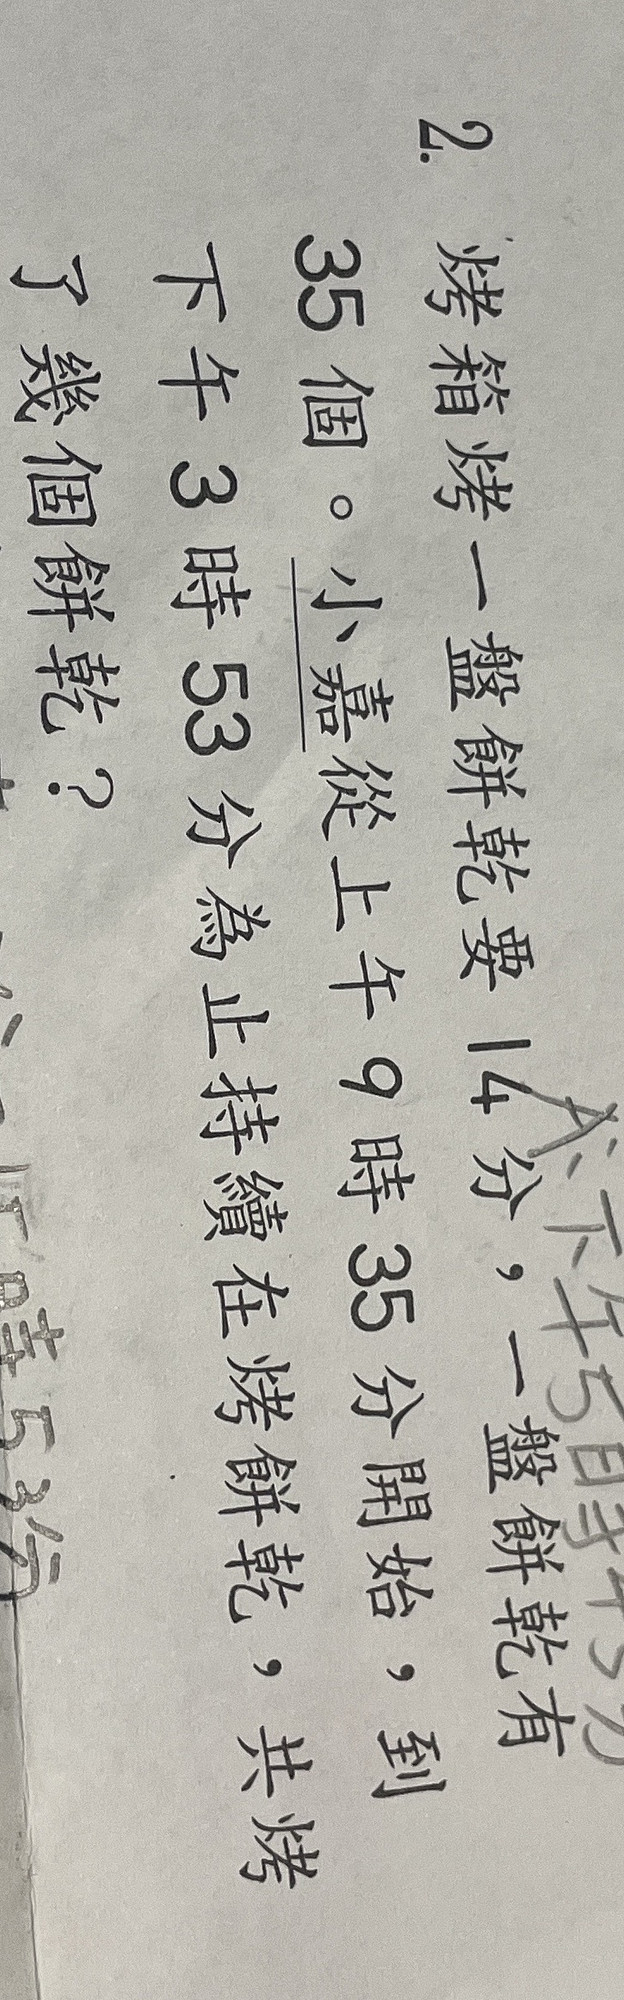 下午5時45分
2. 烤箱烤一盤餅乾要14分，一盤餅乾有
35個。小嘉從上午9時35分開始，到
下午3時53分為止持續在烤餅乾，共烤
了幾個餅乾？
時53分